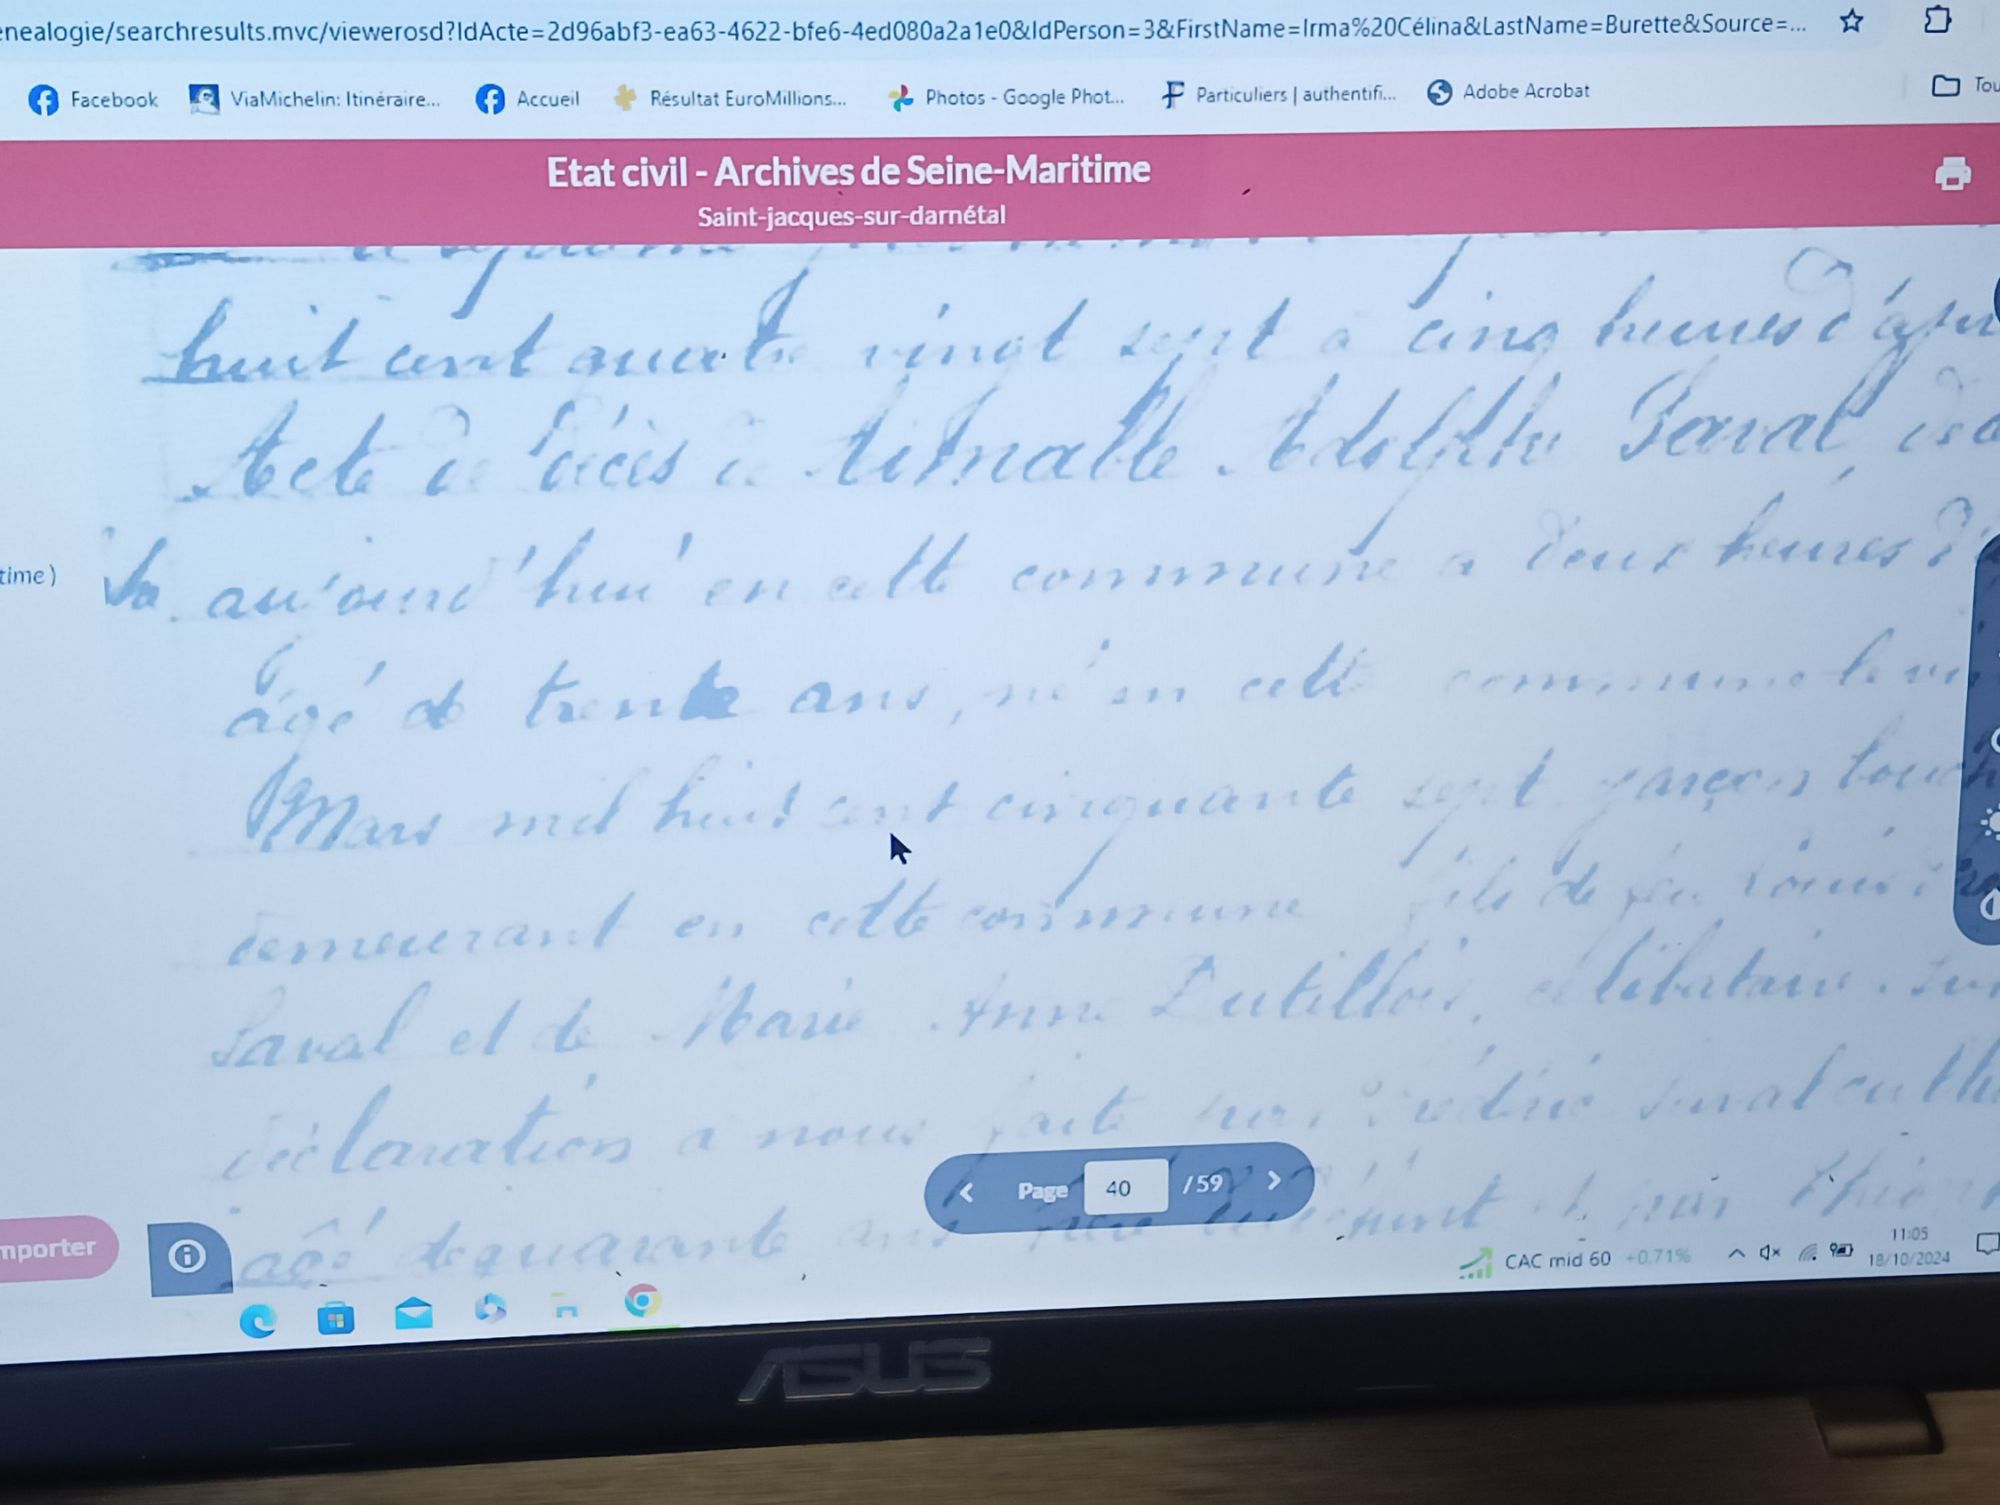 enealogie/searchresults.mvc/viewerosd?IdActe=2d96abf3-ea63-4622-bfe6-4ed080a2a1e0&IdPerson=3&FirstName=Irma%20Célina&LastName=Burette&Source=...
Facebook ViaMichelin: Itinéraire... Accueil Résultat EuroMillions... Photos - Google Phot... Particuliers | authentifi... Adobe Acrobat Tou
Etat civil - Archives de Seine-Maritime
Saint-jacques-sur-darnétal
huit cent quatre vingt sept à cinq heures d'
Acte de décès de Adolphe Laval
time)
aujourd'hui en cette commune a deux heures d'
âgé de trente ans, né en cette commune le
Mars mil huit cent cinquante sept garçon
demeurant en cette commune fils de feu
Laval et de Marie Anne célibataire. Sur
déclaration a nous faite par
mporter
âgé de quarante ans et par
Page 40 /59
CAC mid 60 +0.71%
11:05
18/10/2024
ASUS